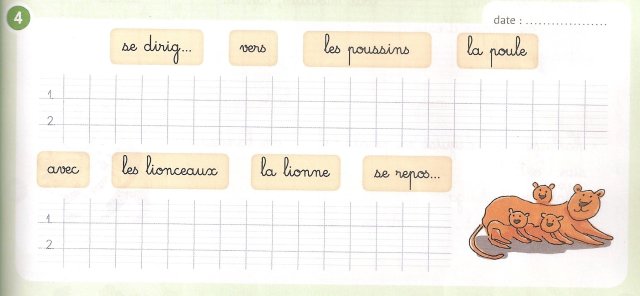 4
date : ....................
se dirig... vers les poussins la poule
1.
2.
avec les lionceaux la lionne se repos...
1.
2.